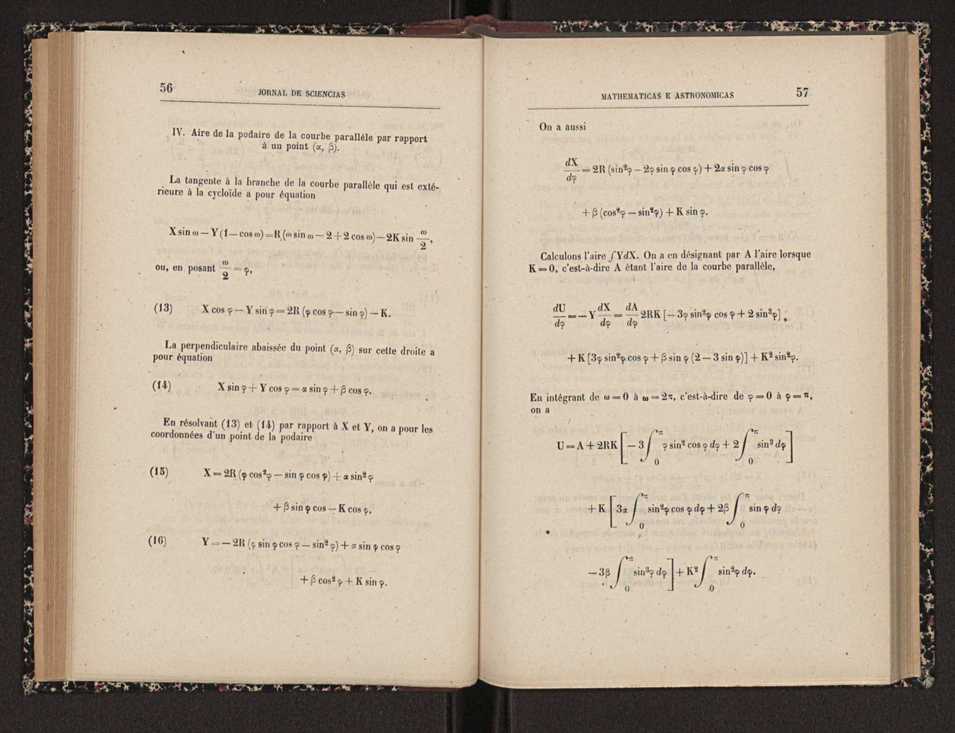 56
JORNAL DE SCIENCIAS
IV. Aire de la podaire de la courbe parallèle par rapport
à un point (α, β).
La tangente à la branche de la courbe parallèle qui est exté-
rieure à la cycloïde a pour équation
X sin ω — Y (1 — cos ω) = R (ω sin ω — 2 + 2 cos ω) — 2K sin ω/2,
ou, en posant ω/2 = φ,
(13) X cos φ — Y sin φ = 2R (φ cos φ — sin φ) — K.
La perpendiculaire abaissée du point (α, β) sur cette droite a
pour équation
(14) X sin φ + Y cos φ = α sin φ + β cos φ.
En résolvant (13) et (14) par rapport à X et Y, on a pour les
coordonnées d'un point de la podaire
(15) X = 2R (φ cos² φ — sin φ cos φ) + α sin² φ
+ β sin φ cos — K cos φ,
(16) Y = — 2R (φ sin φ cos φ — sin² φ) + α sin φ cos φ
+ β cos² φ + K sin φ.
MATHEMATICAS E ASTRONOMICAS
57
On a aussi
dX/dφ = 2R (sin² φ — 2φ sin φ cos φ) + 2α sin φ cos φ
+ β (cos² φ — sin² φ) + K sin φ.
Calculons l'aire ∫YdX. On a en désignant par A l'aire lorsque
K = 0, c'est-à-dire A étant l'aire de la courbe parallèle,
dU/dφ = — Y dX/dφ = dA/dφ 2RK [— 3φ sin² φ cos φ + 2 sin² φ]
+ K [3φ sin² φ cos φ + β sin φ (2 — 3 sin φ)] + K² sin² φ.
En intégrant de ω = 0 à ω = 2π, c'est-à-dire de φ = 0 à φ = π,
on a
U = A + 2RK [— 3 ∫₀^π φ sin² cos φ dφ + 2 ∫₀^π sin³ dφ]
+ K [3α ∫₀^π sin² φ cos φ dφ + 2β ∫₀^π sin φ dφ
— 3β ∫₀^π sin³ φ dφ] + K² ∫₀^π sin² φ dφ.